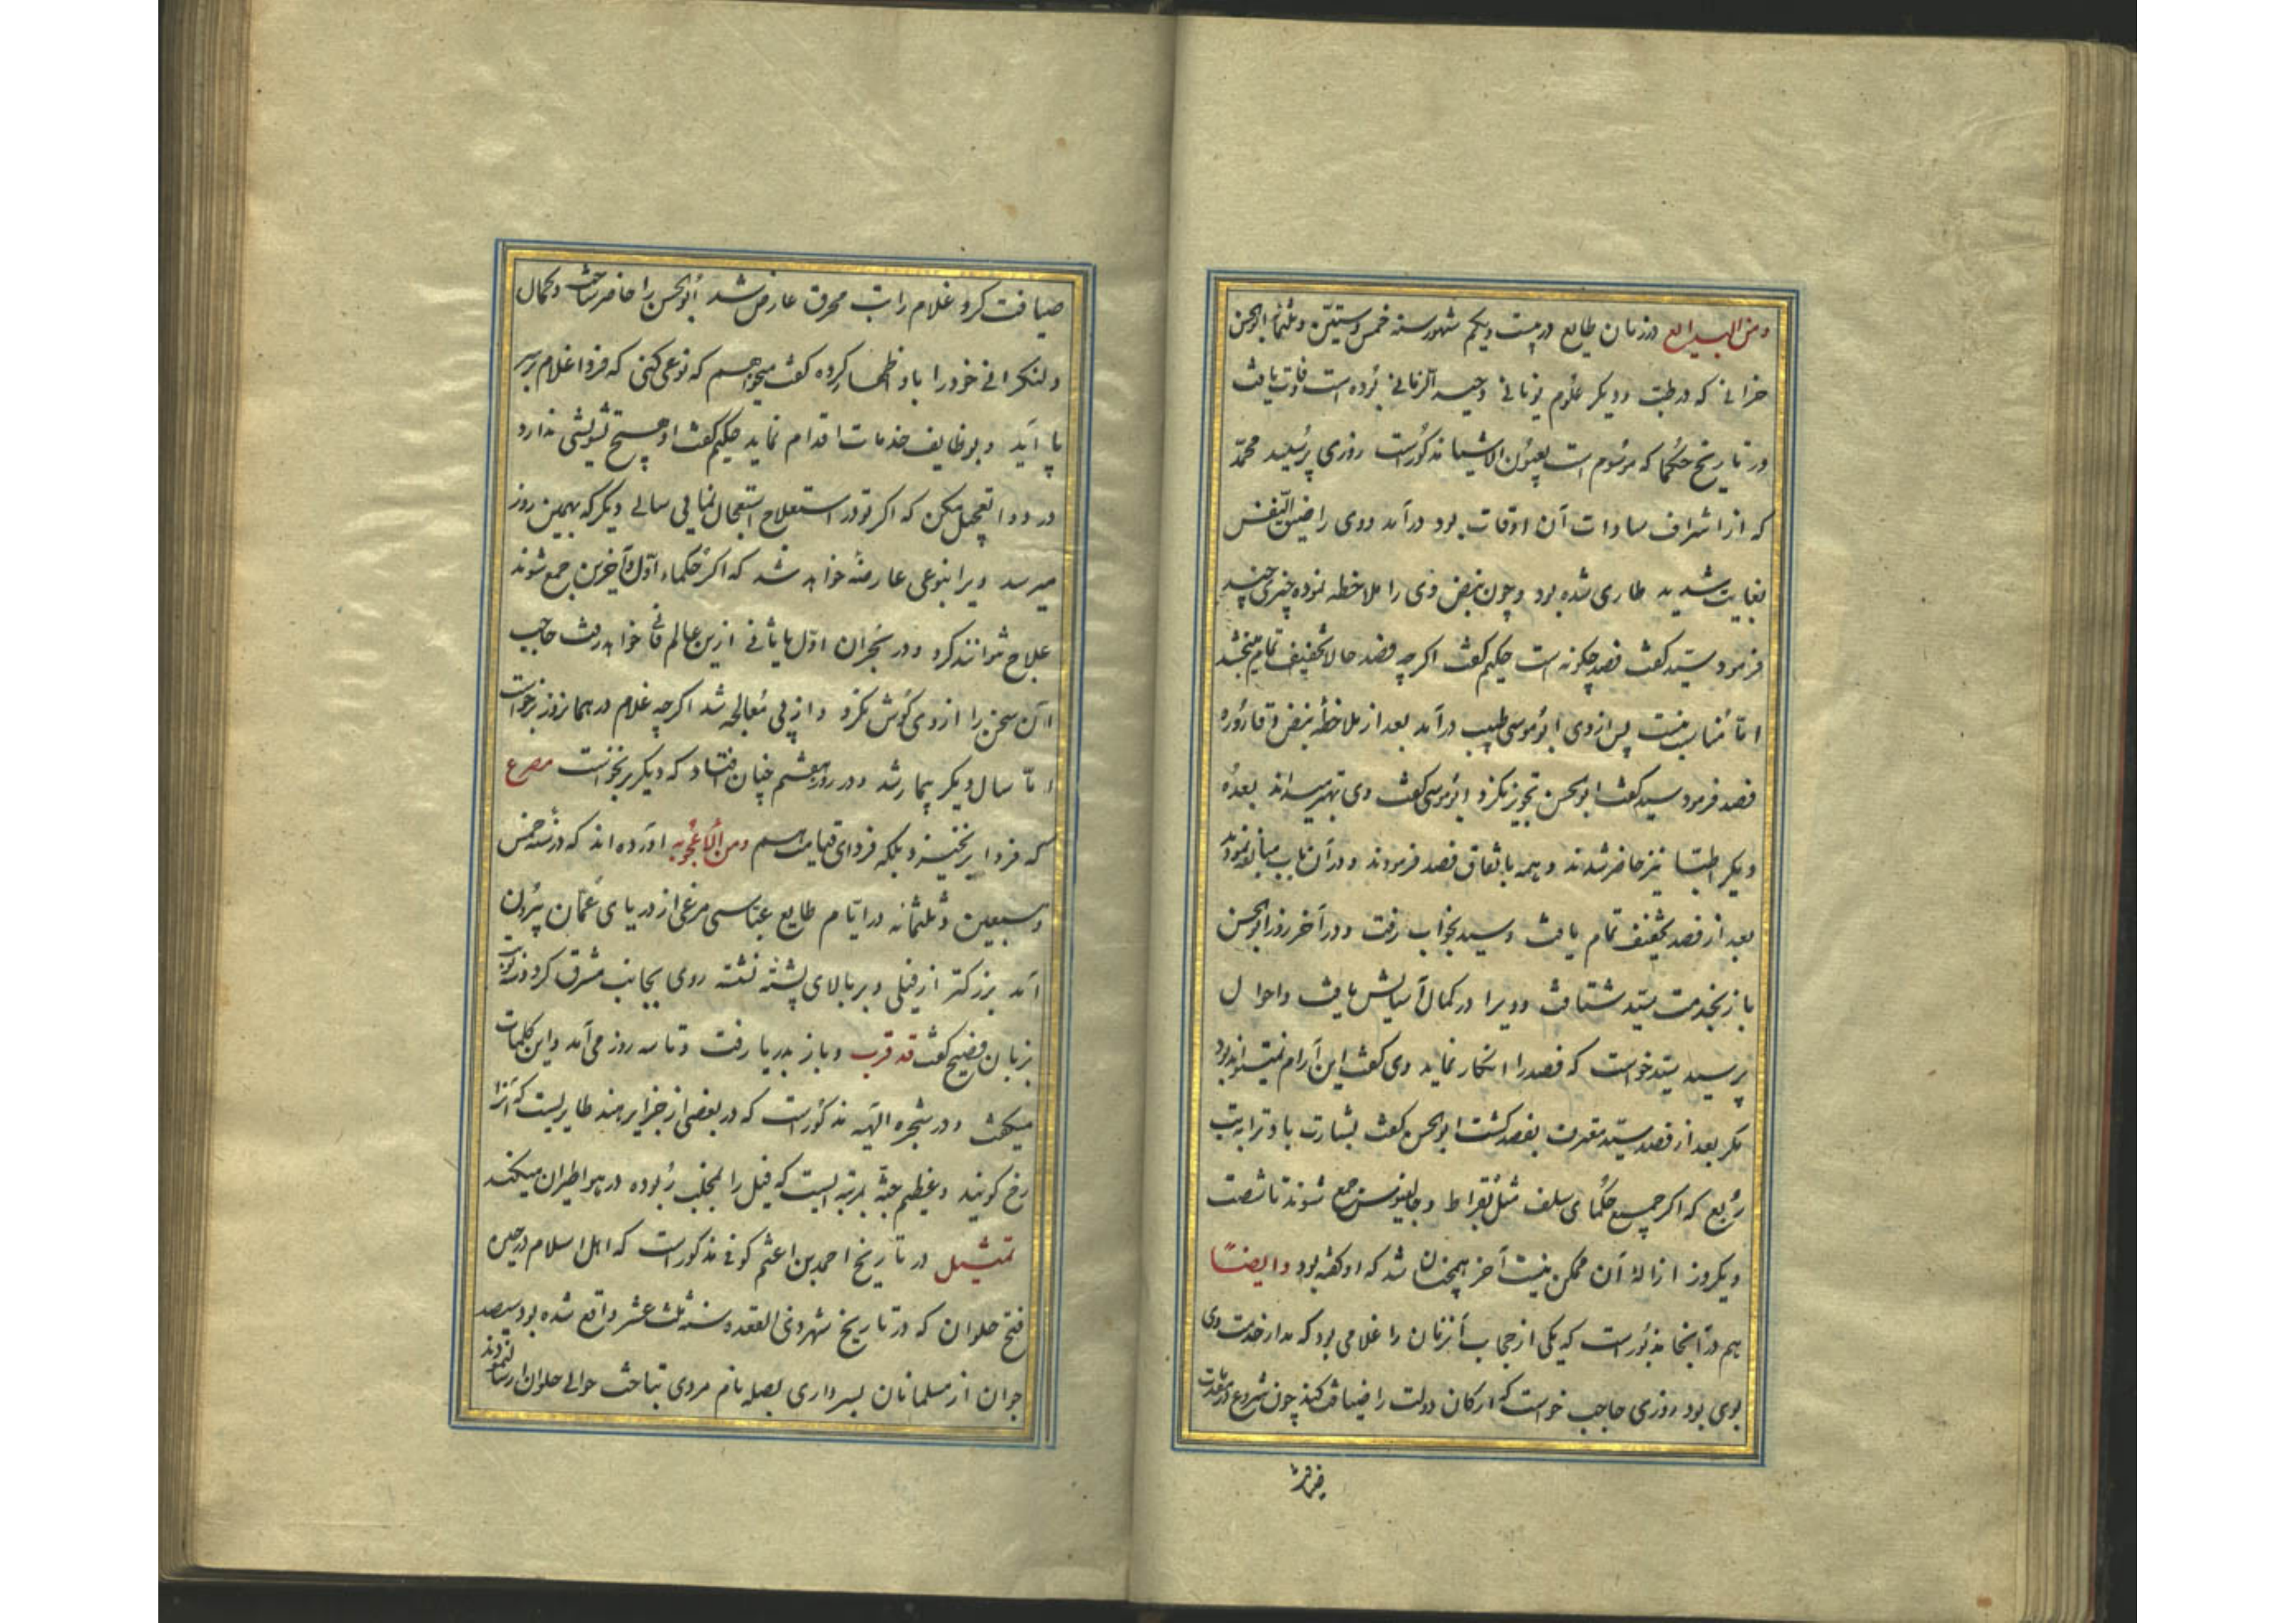 ومن البدایع در زمان طایع در بیست ویکم شهور سنه خمس وستین وثلثمائه ابوالحسن
حرانی که در طب ودیگر علوم یونانی وحید الزمانی بوده است وفات یافت
در تاریخ حکما که مرسوم است بعیون الاشیا مذکورست روزی پرسید محمد
که از اشراف سادات آن اوقات بود درآمد ووی را ضیق النفس
بغایت شدید طاری شده بود وچون نبض وی را ملاحظه نموده چیزی چند
فرمود سید کفت فصد چکونه است حکیم کفت اکرچه فصد حالا تخفیف تمام میبخشد
اما مناسب نیست پس از وی ابو موسی طبیب درآمد بعد از ملاحظهٔ نبض وقاروره
فصد فرمود سید کفت ابوالحسن تجویز نکرد ابو موسی کفت وی بهتر میداند بعده
دیکر اطبا نیز حاضر شدند وهمه باتفاق فصد فرمودند ودر آن باب مبالغه نمودند
بعد از فصد تخفیف تمام یافت وسید بخواب رفت ودر آخر روز ابوالحسن
باز بخدمت سید شتافت وویرا در کمال آسایش یافت واحوال
پرسید سید خواست که فصد را انکار نماید وی کفت این آرام نمیتواند بود
مکر بعد از فصد سید مقرن بفصد کشت ابوالحسن کفت بشارت باد ترا بتب
ربع که اکر جمیع حکمای سلف مثل بقراط وجالینوس جمع شوند تا شصت
ویکروز ازالهٔ آن ممکن نیست آخر همچنان شد که او کفته بود وایضاً
هم در آنجا مذبورست که یکی از حجاب آنزمان را غلامی بود که مدار خدمت وی
بوی بود روزی حاجب خواست که ارکان دولت را ضیافت کند چون شروع در مقدمات
ضیافت کرد غلام را تب محرق عارض شد ابوالحسن را حاضر ساخت وبکمال
دلنکرانی خود را باو اظهار کرده کفت میخواهم که نوعی کنی که فردا غلام بر سر
پا آید وبوظایف خدمات اقدام نماید حکیم کفت او هیچ تشویشی ندارد
در دوا تعجیل مکن که اکر تو در استعلاج استعجال نمایی سالی دیکر که بهمین روز
میرسد ویرا بنوعی عارضه خواهد شد که اکر حکماء اول وآخرین جمع شوند
علاج نتوانند کرد ودر بحران اول یا ثانی ازین عالم فانی خواهد رفت حاجب
آن سخن را از وی کوش نکرد واز پی معالجه شد اکرچه غلام در همانروز برخواست
اما سال دیکر بیمار شد ودر روز هفتم چنان افتاد که دیکر برنخواست مصرع
که فردا برنخیزد بلکه فردای قیامت هم ومن الاعجوبه آورده اند که در سنه خمس
وسبعین وثلثمائه در ایام طایع عباسی مرغی از دریای عمان بیرون
آمد بزرکتر از فیلی وبر بالای پشته نشسته روی بجانب مشرق کرد وسه نوبت
بزبان فصیح کفت قد قرب وباز بدریا رفت وتا سه روز می آمد واین کلمات
میکفت ودر شجره الهیه مذکورست که در بعضی از جزایر هند طایریست که آنرا
رخ کویند وعظیم جثه بمرتبه ایست که فیل را بمخلب ربوده در هوا طیران میکند
تمثیل در تاریخ احمد بن اعثم کوفی مذکورست که اهل اسلام در حین
فتح حلوان که در تاریخ شهر ذی القعده سنه ثلث عشر واقع شده بود سیصد
جوان از مسلمانان بسرداری بصله نام مردی بتاخت حوالی حلوان ارسال نمودند
ضیافت